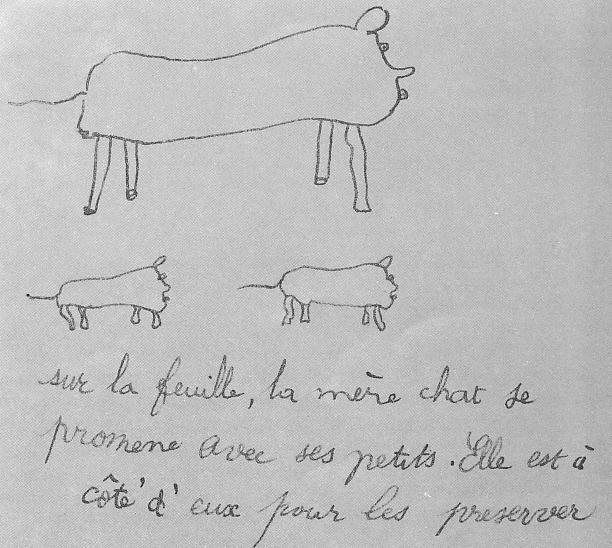 sur la feuille, la mère chat se
promene avec ses petits. Elle est à
côté d'eux pour les preserver